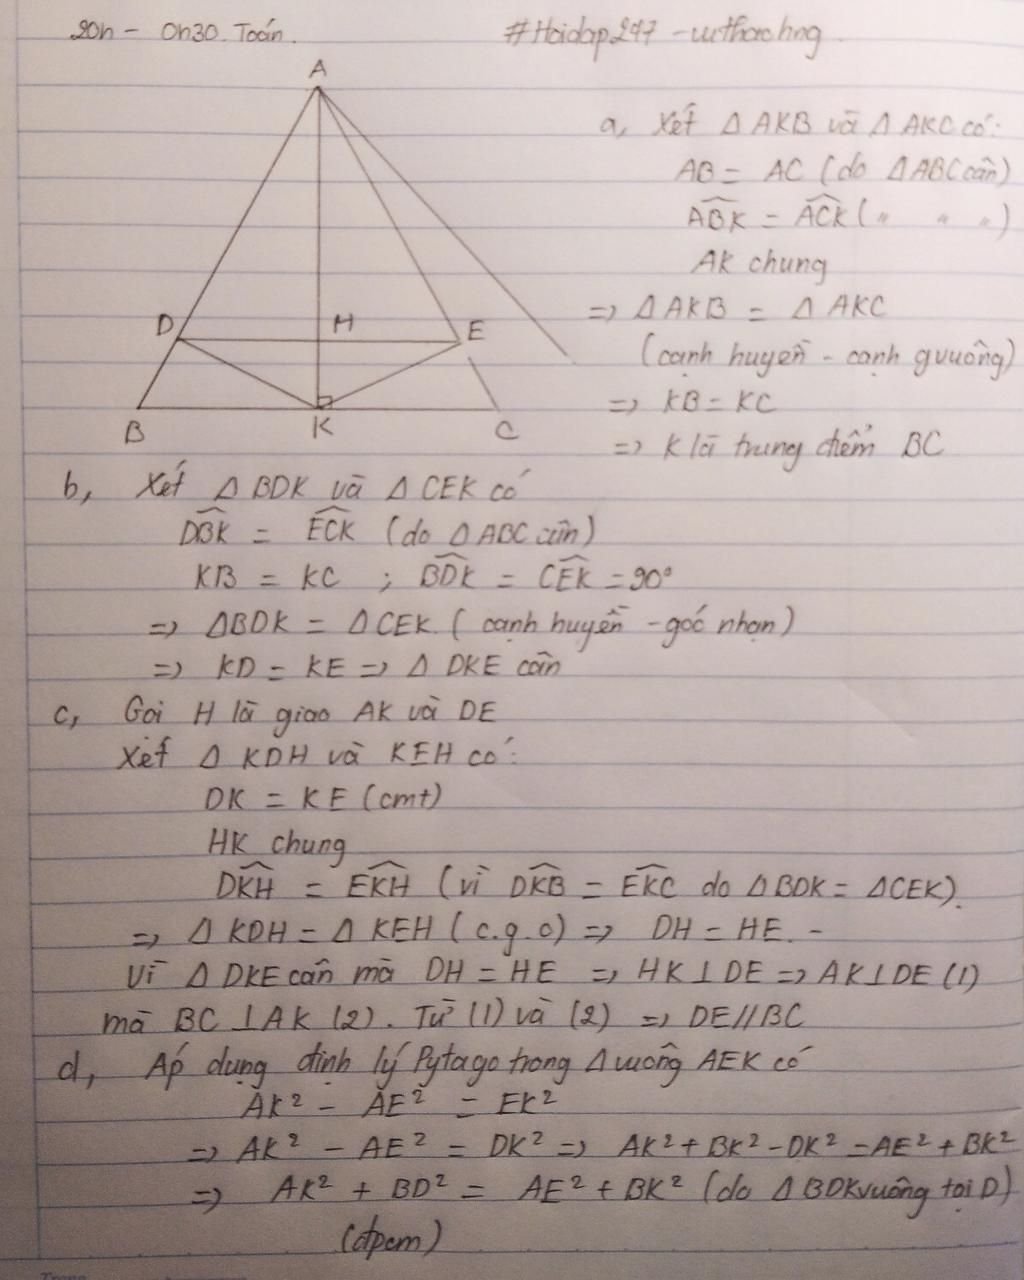 20h - 0h30. Toán.
#Hoidap247 -
A
D
H
E
B
K
C
a, Xét Δ AKB và Δ AKC có:
AB = AC (do ΔABC cân)
ABK = ACK ( " " " )
AK chung
=> Δ AKB = Δ AKC
(cạnh huyền - cạnh gvuông)
=> KB = KC
=> K là trung điểm BC
b, Xét Δ BDK và Δ CEK có
DBK = ECK (do ΔABC cân)
KB = KC ; BDK = CEK = 90°
=> ΔBDK = ΔCEK. ( cạnh huyền - góc nhọn)
=> KD = KE => Δ DKE cân
c, Gọi H là giao AK và DE
Xét Δ KDH và KEH có:
DK = KE (cmt)
HK chung
DKH = EKH (vì DKB = EKC do ΔBDK = ΔCEK).
=> Δ KDH = Δ KEH ( c.g.c) => DH = HE. -
Vì Δ DKE cân mà DH = HE => HK⊥DE => AK⊥DE (1)
mà BC ⊥AK (2). Từ (1) và (2) => DE//BC
d, Áp dụng định lý Pytago trong Δ vuông AEK có
AK² - AE² = EK²
=> AK² - AE² = DK² => AK² + BK² - DK² = AE² + BK²
=> AK² + BD² = AE² + BK² (do ΔBDK vuông tại D)
(đpcm)